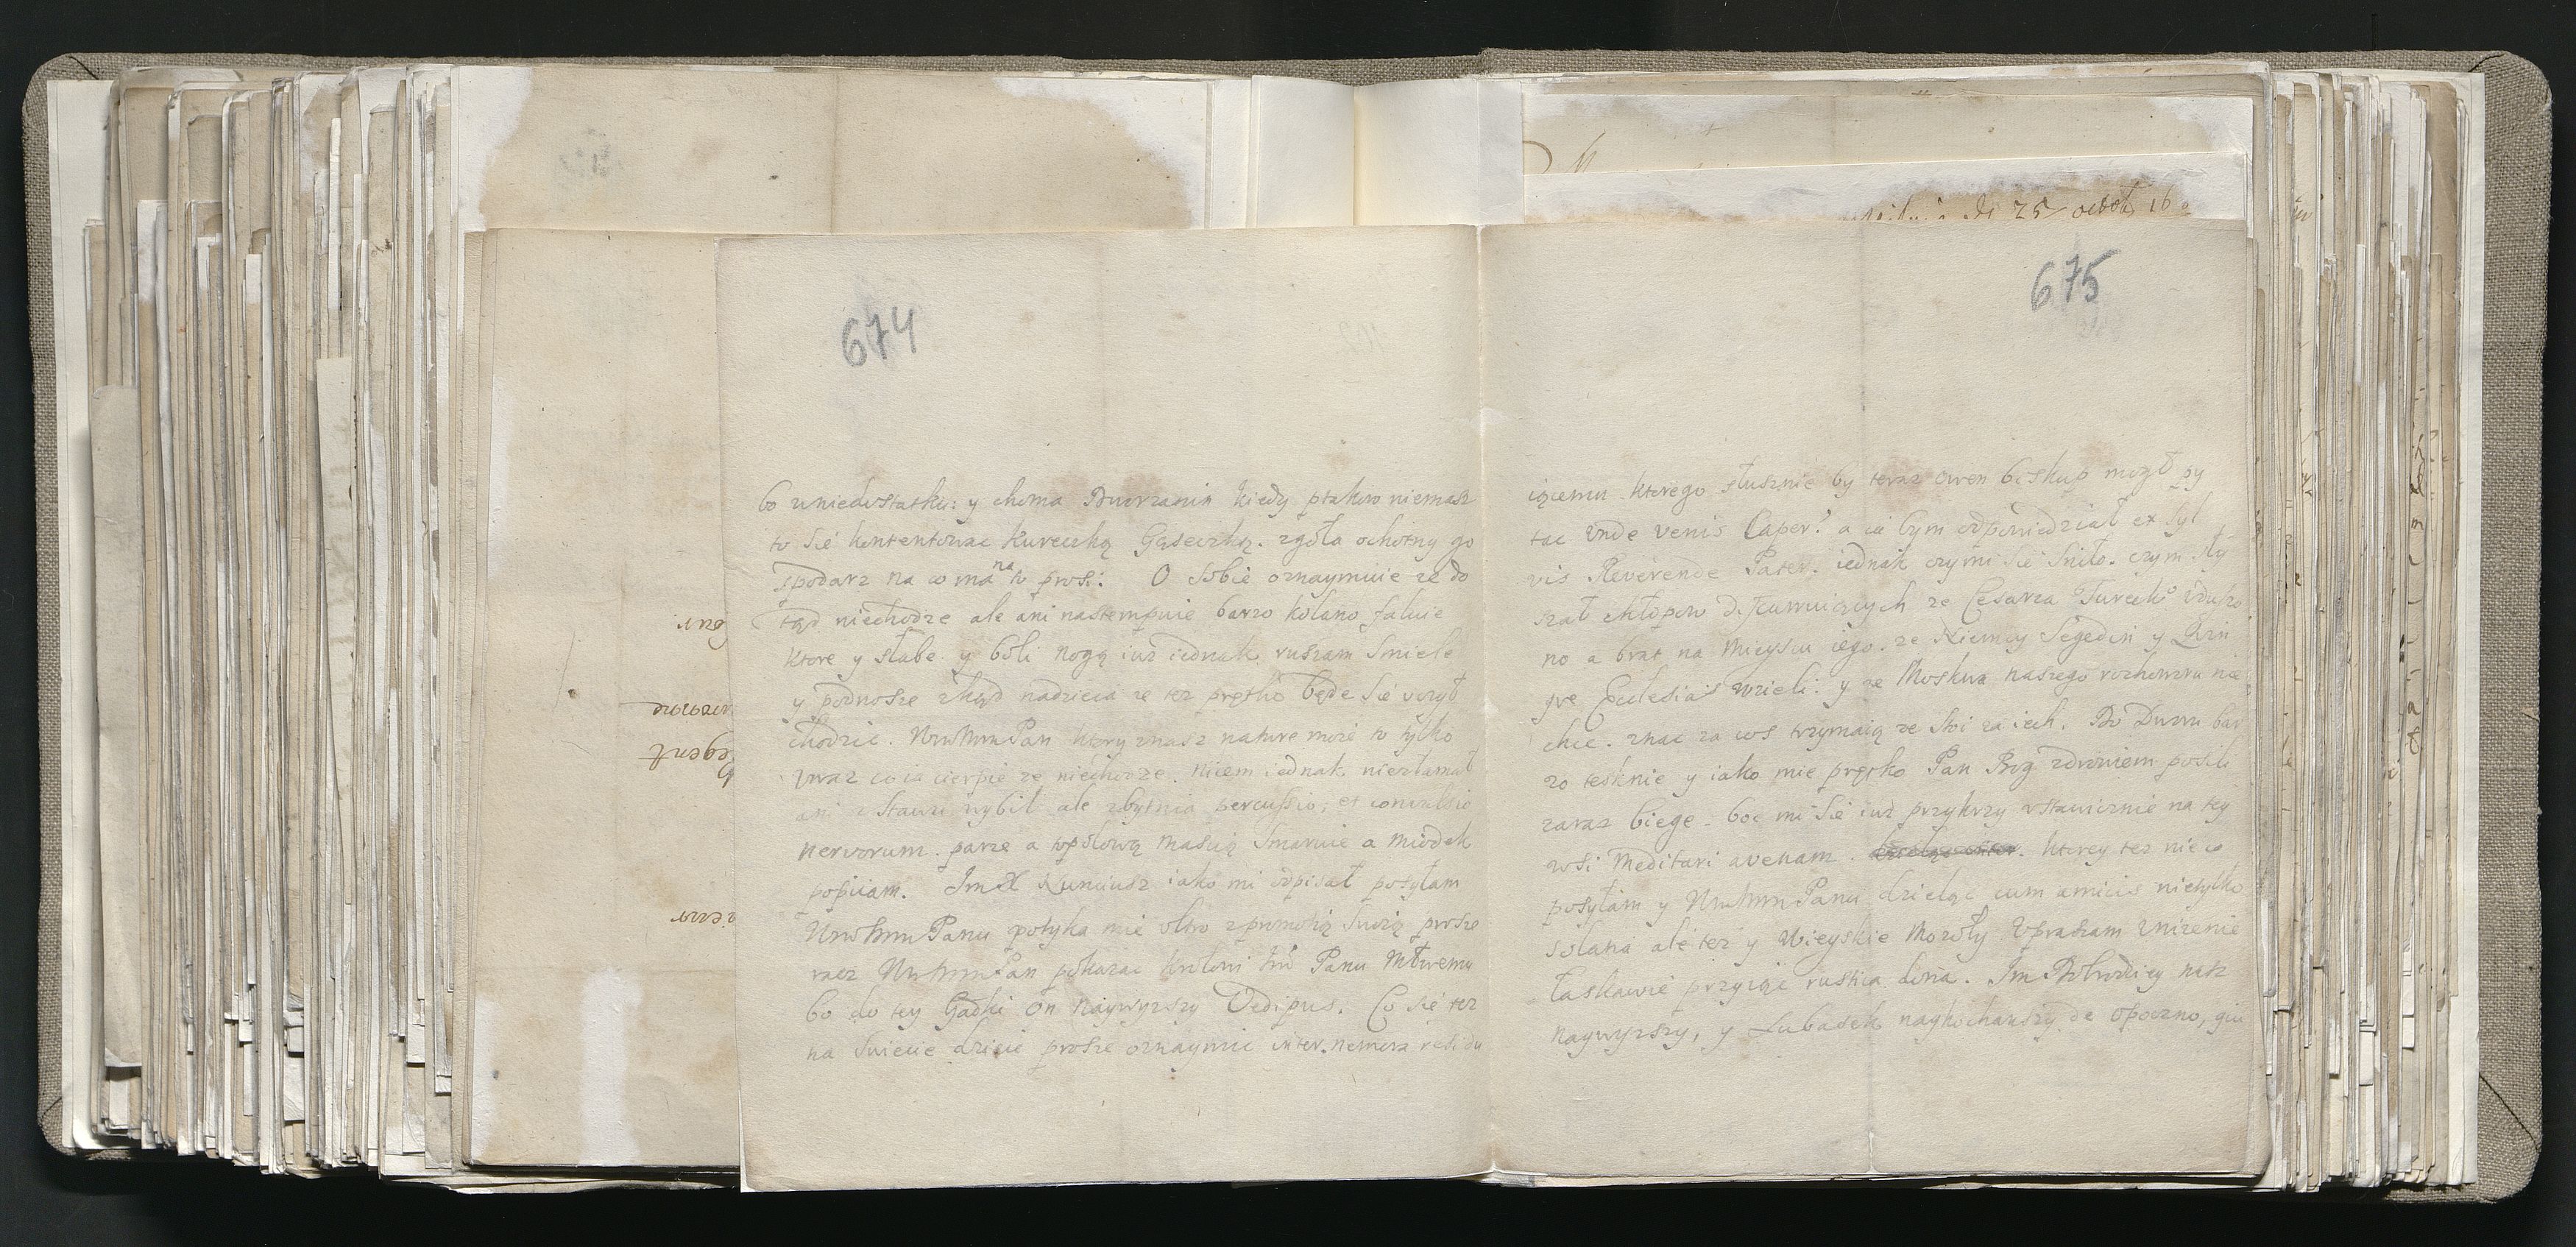 674
bo wniedostatku: y choma Dworzanin kiedy ptakow niemasz
to sie kontentowac kureczką Gąseczką. zgoła ochotny go
spodarz na co ma na to prosi. O sobie oznaymuie ze do
tąd niechodze ale ani nastempuie barzo kolano
ktore y słabe y boli nogą iuz iednak ruszam smiele
y podnosze zkąd nadzieia ze tez prętko będe sie uczył
chodzic. WmMmPan ktory znasz nature moie to tylko
ia cierpie ze niechodze. niczem iednak niezłamał
ani z stawu wybił ale zbytnia percussio, et convulsio
nervorum. parze a topolową mascią smaruie a miodek
popiiam. ImX Nunciusz iako mi odpisał posyłam
WmMmPanu potyka mie swoią prosze
racz WmMmPan pokazac krolowi Panu Młwemu
bo do tey Gadki on naywyzszy Oedipus. Co sie tez
na swiecie dzieie prosze oznaymic inter nemora residu
675
iącemu ktorego słusznie by teraz owen biskup mogł py
tac unde venis Caper? a ia bym odpowiedział ex syl
vis Reverende Pater. iednak czy mi sie sniło. czym sły
szał chłopow diszkuruiących ze Cesarza Tureck° uduszo
no a brat na mieyscu iego. ze Niemcy Segedin y
Ecclesias wzieli. y ze Moskwa naszego rozhoworu nie
chce. znac za cos trzymaią ze swi za iech. Do Dworu bar
zo tesknie y iako mie prętko Pan Bog zdrowiem posili
zaraz biege. boc mi sie iuz przykrzy ustawicznie na tey
wsi meditari avenam. ktorey tez nieco
posyłam y WmMmPanu dzieląc cum amicis nietylko
solana ale tez y Wieyskie mozoły Upraszam Unizenie
łaskawie przyiąc rustica dona. Im nasz
naywyzszy, y Lubasek naykochanszy de Opoczno, qui